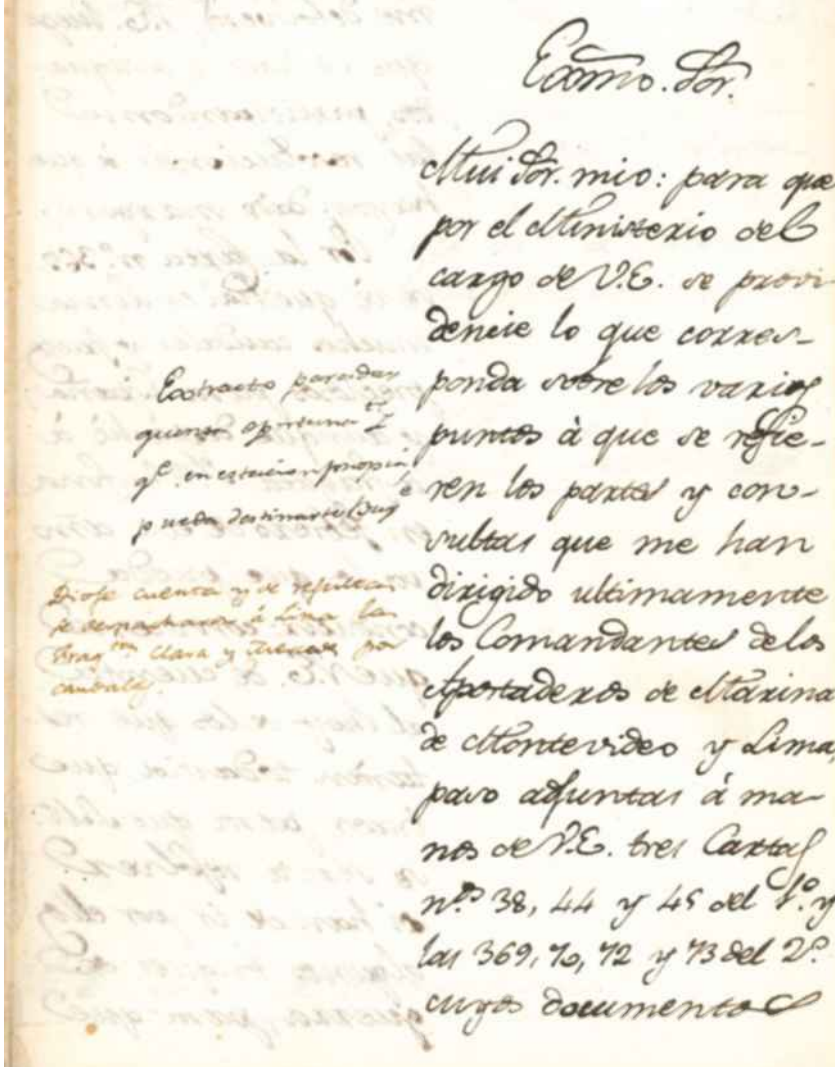 Exmo. Sor.
Mui Sor. mio: para que
por el Ministerio del
cargo de V.E. se provi-
dencie lo que corres-
ponda sobre los varios
puntos à que se refie-
ren los partes y con-
sultas que me han
dirigido ultimamente
los Comandantes de los
Apostaderos de Marina
de Montevideo y Lima,
paso adjuntas á ma-
nos de V.E. tres Cartas
nos. 38, 44 y 45 del 1º. y
las 369, 70, 72 y 73 del 2º.
cuyos documentos
Extracto para dar
quenta oportuna
qe. en estacion propicia
pueda destinarse
Diose cuenta y de resultas
se despacharon à Lima las
Fragtas. Clara y por
caudales.